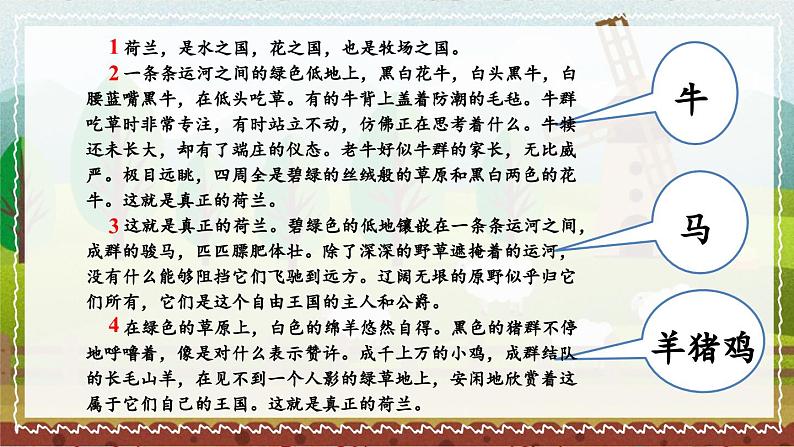 1 荷兰，是水之国，花之国，也是牧场之国。
2 一条条运河之间的绿色低地上，黑白花牛，白头黑牛，白
腰蓝嘴黑牛，在低头吃草。有的牛背上盖着防潮的毛毡。牛群
吃草时非常专注，有时站立不动，仿佛正在思考着什么。牛犊
还未长大，却有了端庄的仪态。老牛好似牛群的家长，无比威
严。极目远眺，四周全是碧绿的丝绒般的草原和黑白两色的花
牛。这就是真正的荷兰。
3 这就是真正的荷兰。碧绿色的低地镶嵌在一条条运河之间，
成群的骏马，匹匹膘肥体壮。除了深深的野草遮掩着的运河，
没有什么能够阻挡它们飞驰到远方。辽阔无垠的原野似乎归它
们所有，它们是这个自由王国的主人和公爵。
4 在绿色的草原上，白色的绵羊悠然自得。黑色的猪群不停
地呼噜着，像是对什么表示赞许。成千上万的小鸡，成群结队
的长毛山羊，在见不到一个人影的绿草地上，安闲地欣赏着这
属于它们自己的王国。这就是真正的荷兰。
牛
马
羊猪鸡